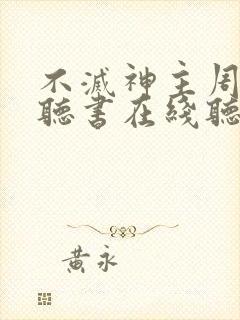 不滅神主周
聽書在綫聽
黃永